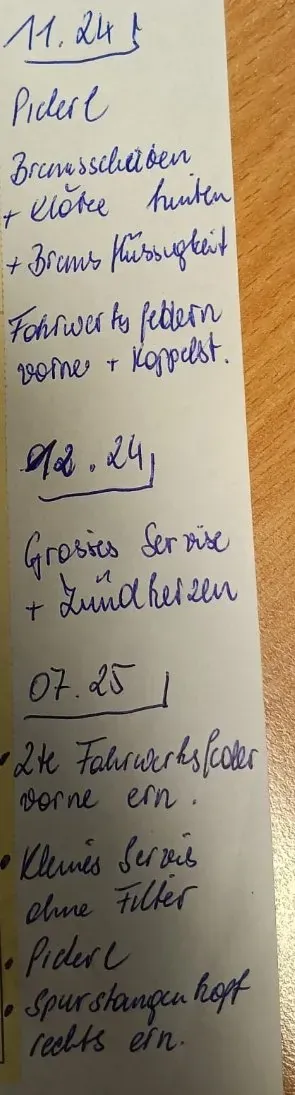 11.24
Pickerl
Bremsscheiben
+ Klötze hinten
+ Brems flüssigkeit
Fahrwerksfedern
vorne + Koppelst.
12.24
Grosses Service
+ Zündkerzen
07.25
• 2te Fahrwerksfeder
vorne ern.
• Kleines Servis
ohne Filter
• Pickerl
• Spurstangenkopf
rechts ern.